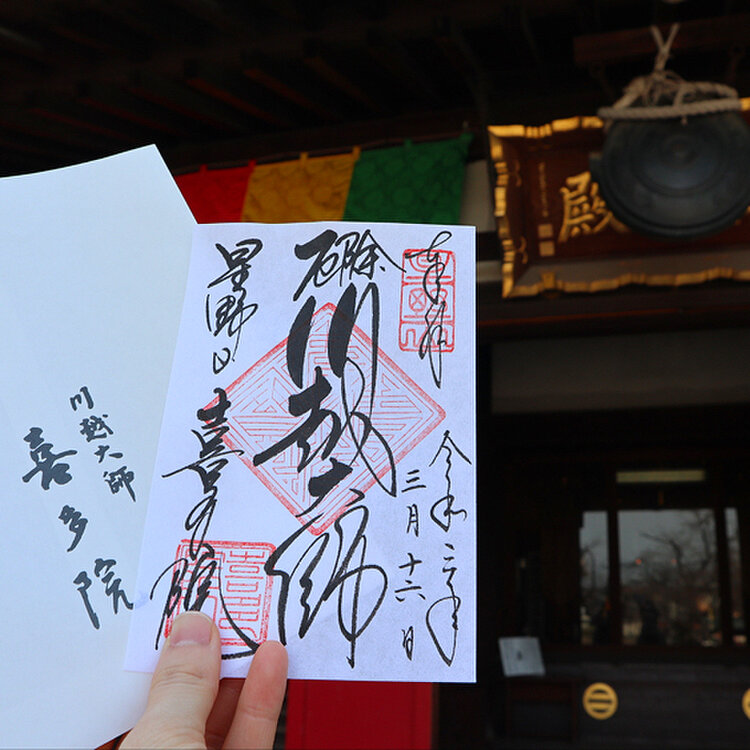 殿
奉拝
令和二年
三月十六日
厄除
川越大師
星野山
喜多院
川越大師
喜多院